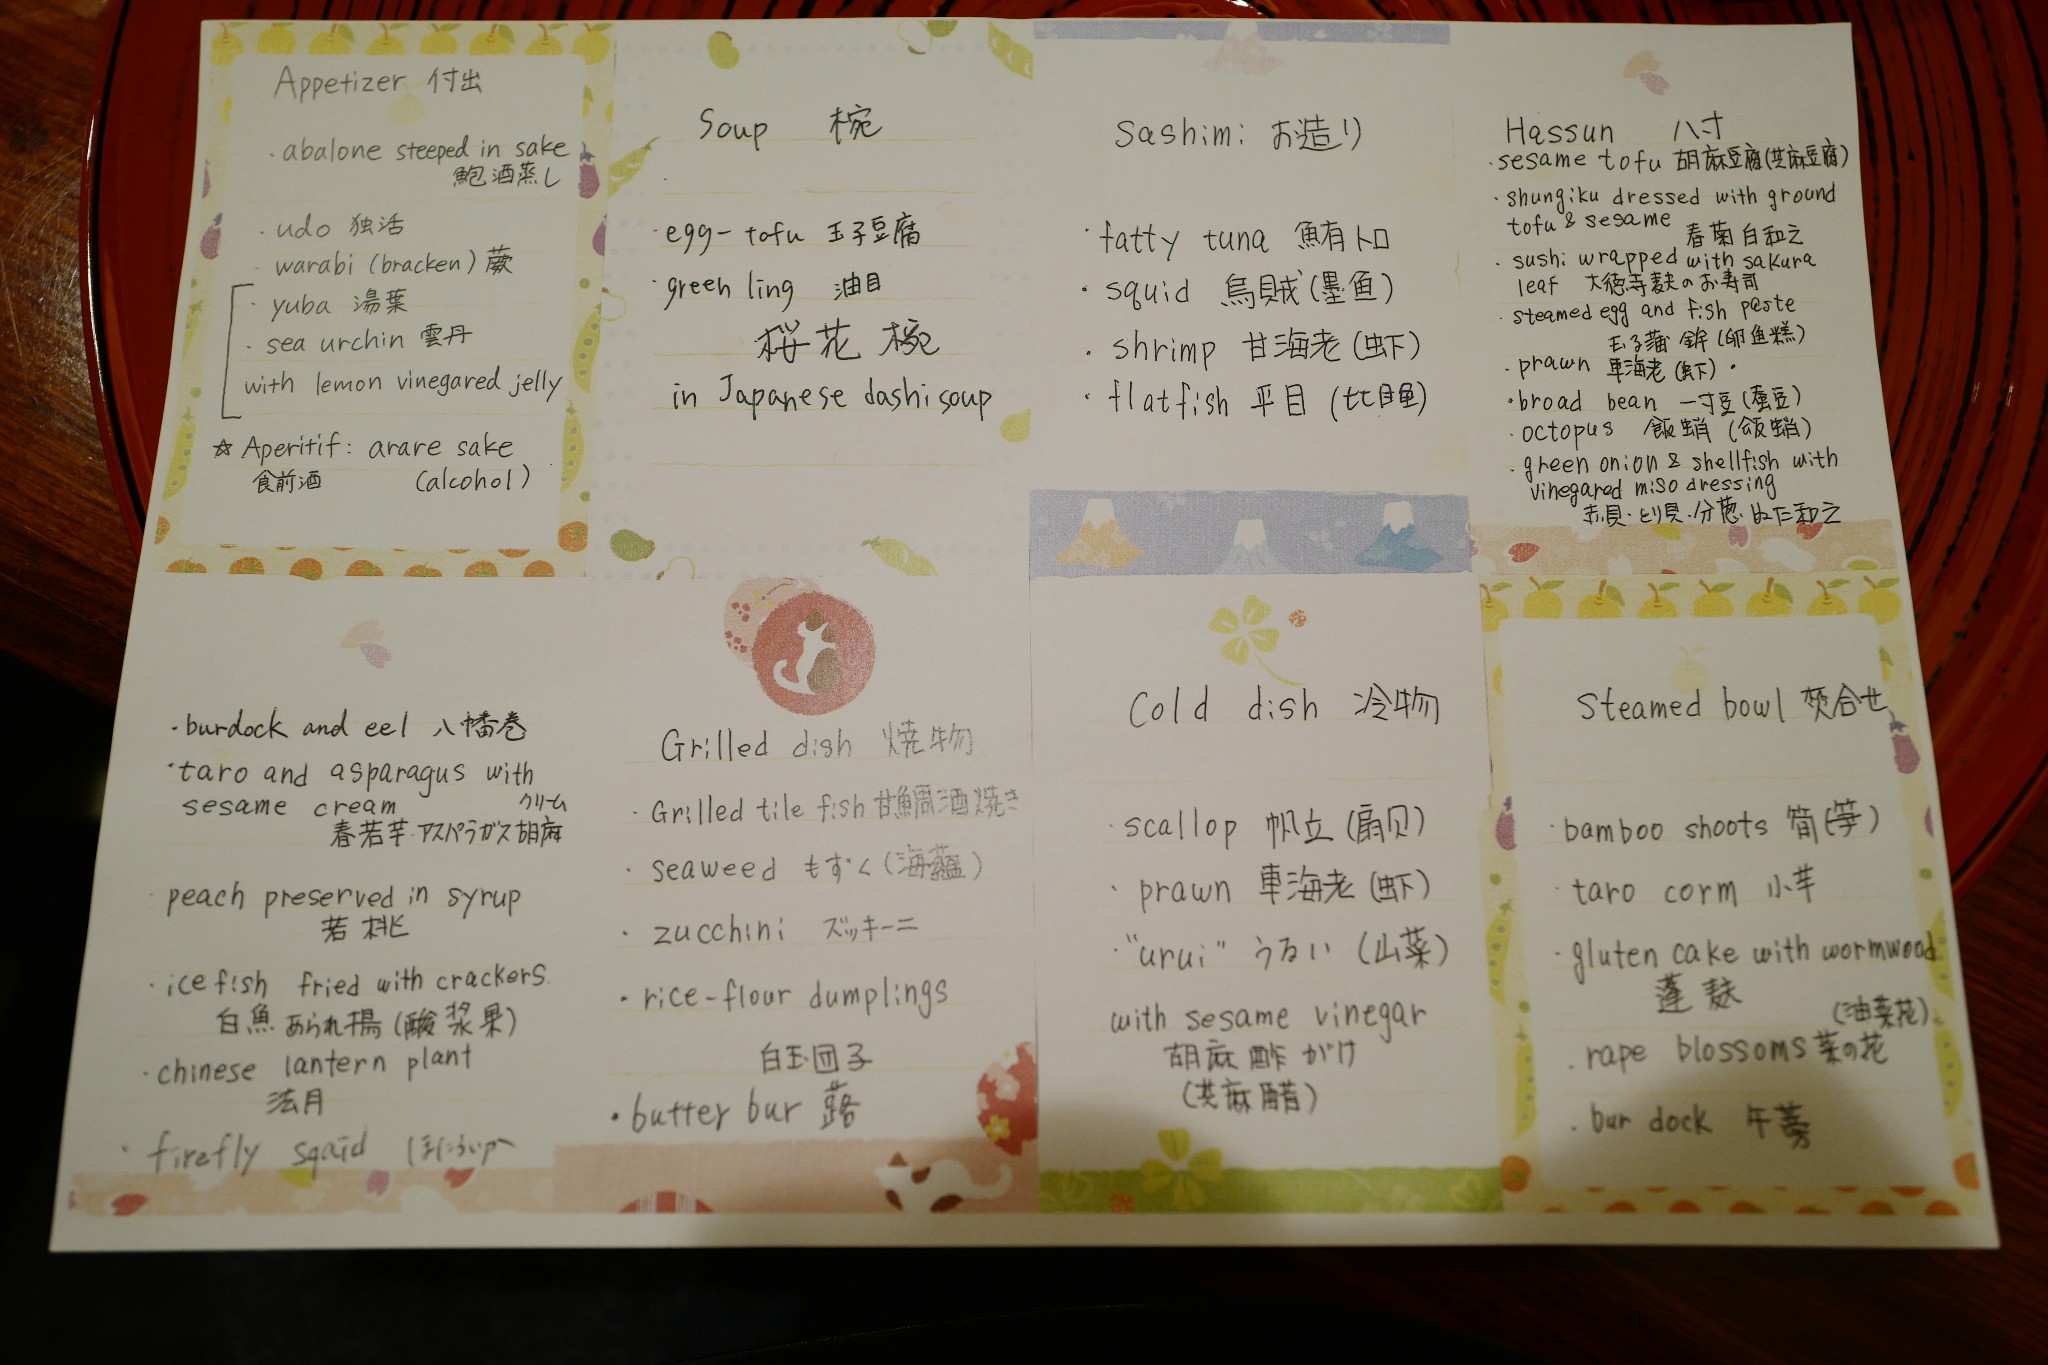 Appetizer 付出
・abalone steeped in sake
鮑酒蒸し
・udo 独活
・warabi (bracken) 蕨
・yuba 湯葉
・sea urchin 雲丹
with lemon vinegared jelly
☆ Aperitif: arare sake
食前酒 (alcohol)
Soup 椀
・egg-tofu 玉子豆腐
・green ling 油目
桜花椀
in Japanese dashi soup
Sashimi お造り
・fatty tuna 鮪トロ
・squid 烏賊(墨魚)
・shrimp 甘海老(虾)
・flatfish 平目 (比目魚)
Hassun 八寸
・sesame tofu 胡麻豆腐(芝麻豆腐)
・shungiku dressed with ground
tofu & sesame
春菊白和え
・sushi wrapped with sakura
leaf 大徳寺麸のお寿司
・steamed egg and fish paste
玉子蒲鉾(卵魚糕)
・prawn 車海老(虾)・
・broad bean 一寸豆(蚕豆)
・octopus 飯蛸 (飯蛸)
・green onion & shellfish with
vinegared miso dressing
赤貝・とり貝・分葱・ぬた和え
・burdock and eel 八幡巻
・taro and asparagus with
sesame cream クリーム
春若芋・アスパラガス胡麻
・peach preserved in syrup
若桃
・ice fish fried with crackers.
白魚あられ揚(酸浆果)
・chinese lantern plant
法月
・firefly squid ほたるいか
Grilled dish 焼物
・Grilled tile fish 甘鯛酒焼き
・seaweed もずく(海蘊)
・zucchini ズッキーニ
・rice-flour dumplings
白玉団子
・butter bur 蕗
Cold dish 冷物
・scallop 帆立(扇贝)
・prawn 車海老(虾)
・"urui" うるい (山菜)
with sesame vinegar
胡麻酢がけ
(芝麻醋)
Steamed bowl 焚合せ
・bamboo shoots 筍(笋)
・taro corm 小芋
・gluten cake with wormwood
蓬麸
(油菜花)
・rape blossoms 菜の花
・burdock 午蒡